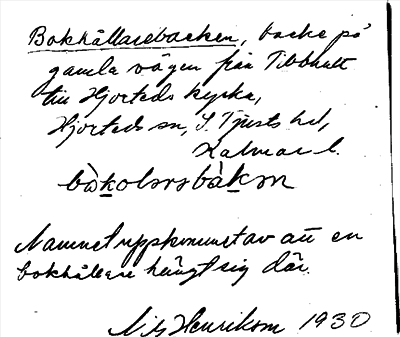 Bokhållarebacken, backe på
gamla vägen från Tibbhult
till Hjorteds kyrka,
Hjorteds sn, S. Tjusts hd,
Kalmar l.
bàkolarsbàkɘn
Namnet uppkommet av att en
bokhållare hängt sig där.
Nils Henrikson 1930